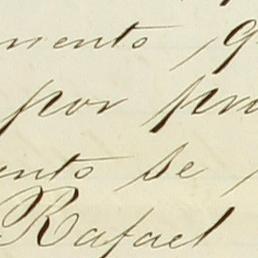 mento, q
por pr
ento se
Rafael